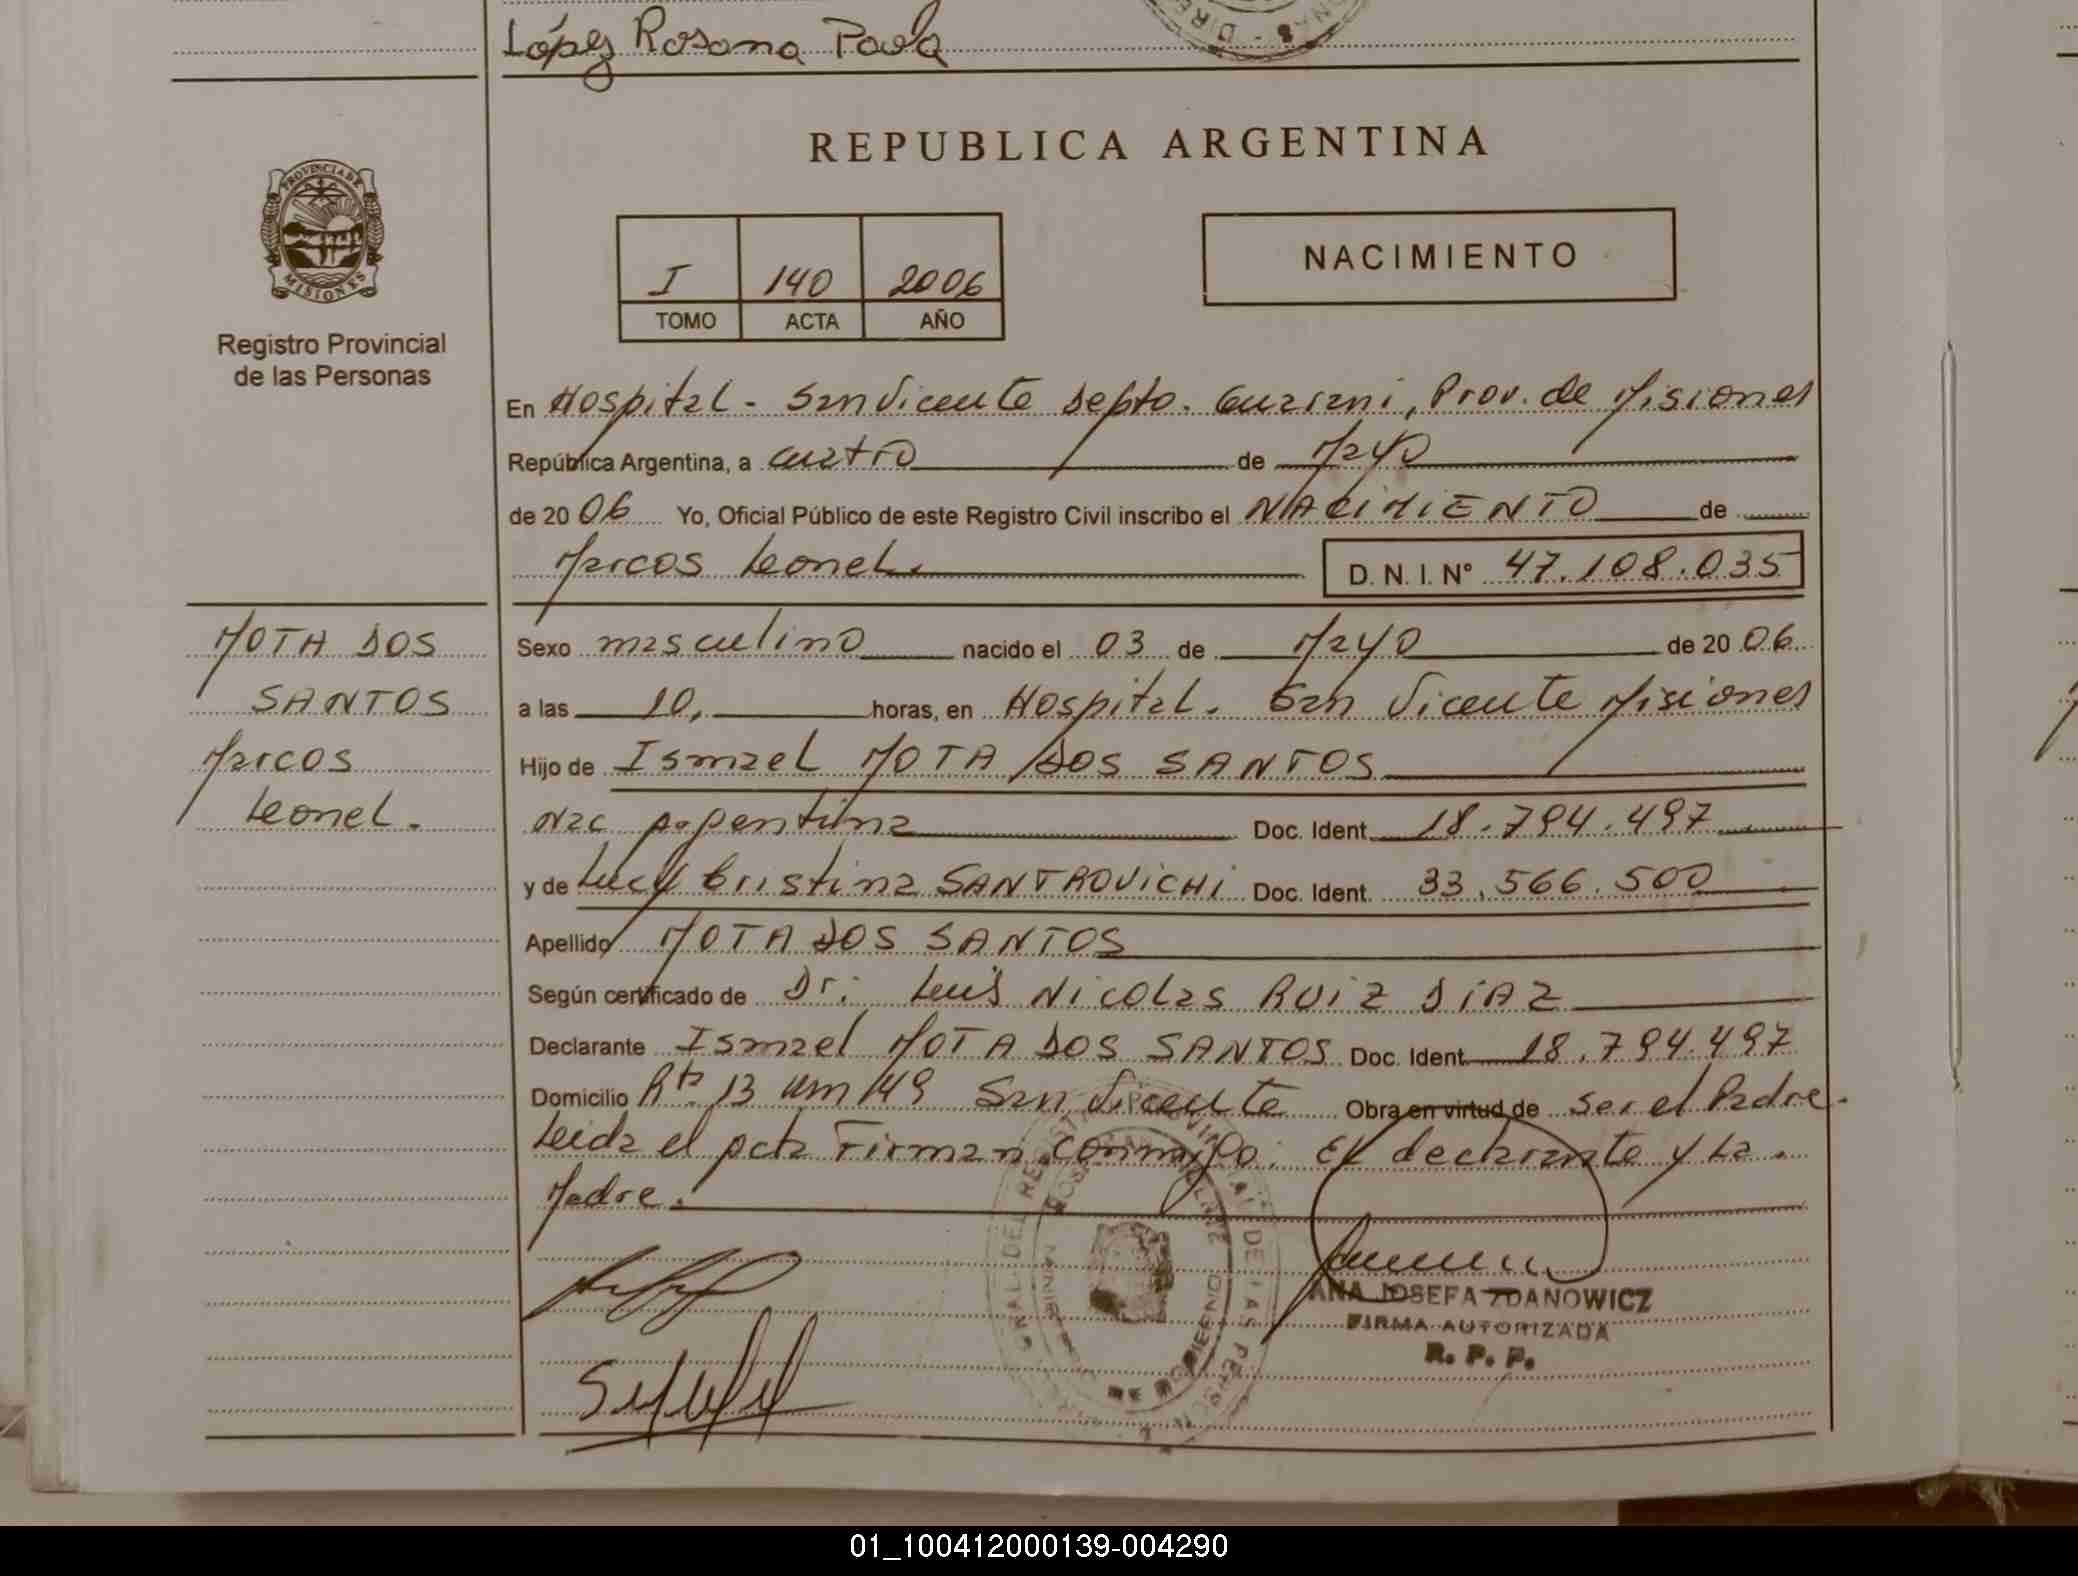 López Rosana Paola
REPUBLICA ARGENTINA
PROVINCIA DE
MISIONES
Registro Provincial
de las Personas
I 140 2006
TOMO ACTA AÑO
NACIMIENTO
En Hospital - San Vicente Depto. Guarani, Prov. de Misiones
República Argentina, a cuatro de Mayo
de 2006 Yo, Oficial Público de este Registro Civil inscribo el NACIMIENTO de
Marcos Leonel. D. N. I. Nº 47.108.035
MOTA DOS
SANTOS
Marcos
Leonel.
Sexo masculino nacido el 03 de Mayo de 2006
a las 10, horas, en Hospital. San Vicente Misiones
Hijo de Ismael MOTA DOS SANTOS
Nac Argentina Doc. Ident. 18.794.497
y de Lucy Cristina SANTROVICHI Doc. Ident. 33.566.500
Apellido MOTA DOS SANTOS
Según certificado de Dr. Luis Nicolas RUIZ DIAZ
Declarante Ismael MOTA DOS SANTOS Doc. Ident. 18.794.497
Domicilio Rta. 13 Km 149 San Vicente Obra en virtud de ser el Padre.
Leida el acta Firman conmigo: El declarante y La.
Madre.
ANA JOSEFA ZDANOWICZ
FIRMA AUTORIZADA
R. P. P.
01_100412000139-004290